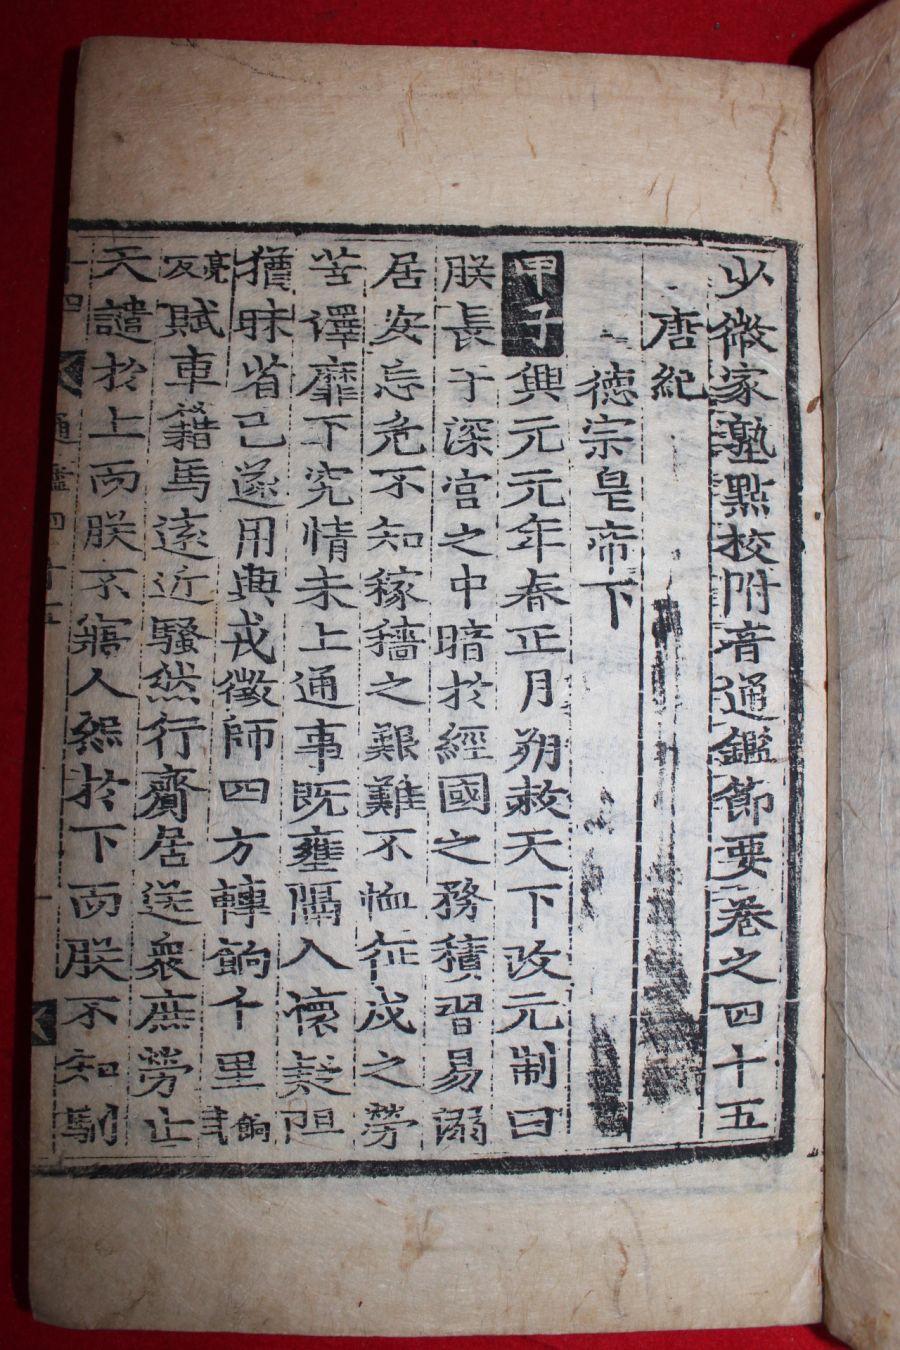 少微家塾點校附音通鑑節要卷之四十五
唐紀
德宗皇帝下
甲子興元元年春正月朔赦天下改元制曰
朕長于深宮之中暗於經國之務積習易溺
居安忘危不知稼穡之艱難不恤征戍之勞
苦澤靡下究情未上通事既壅隔人懷疑阻
猶昧省己遂用興戎徵師四方轉餉千里餉式
亮反賦車籍馬遠近騷然行齎居送衆庶勞止
天譴於上而朕不寤人怨於下而朕不知馴
通鑑四十五